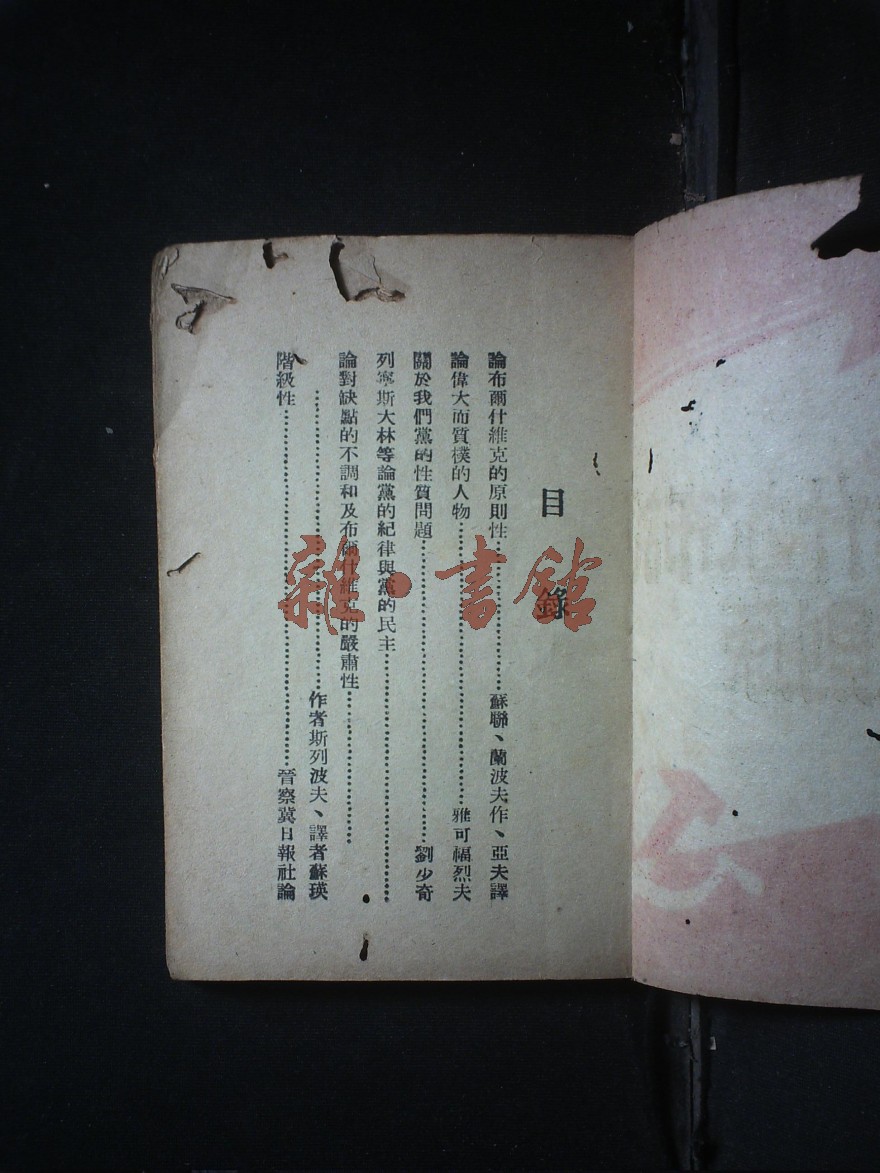 目錄
論布爾什維克的原則性………………蘇聯、蘭波夫作、亞夫譯
論偉大而質樸的人物………………………………雅可福烈夫
關於我們黨的性質問題………………………………劉少奇
列寧斯大林等論黨的紀律與黨的民主…………………………
論對缺點的不調和及布爾什維克的嚴肅性………………
………………………………作者斯列波夫、譯者蘇瑛
階級性………………………………………晉察冀日報社論
雜·書館